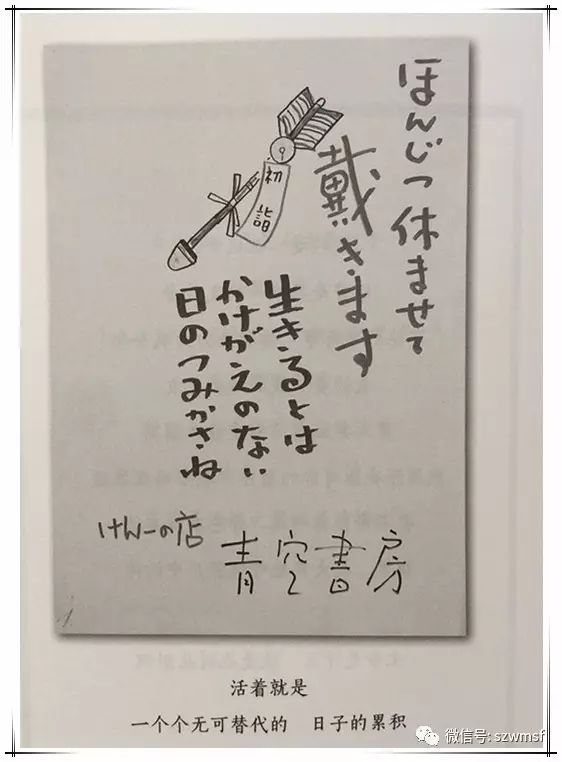 ほんじつ休ませて
戴きます
初詣
生きるとは
かけがえのない
日のつみかさね
青空書房
活着就是
一个个无可替代的 日子的累积
微信号: szwmsf